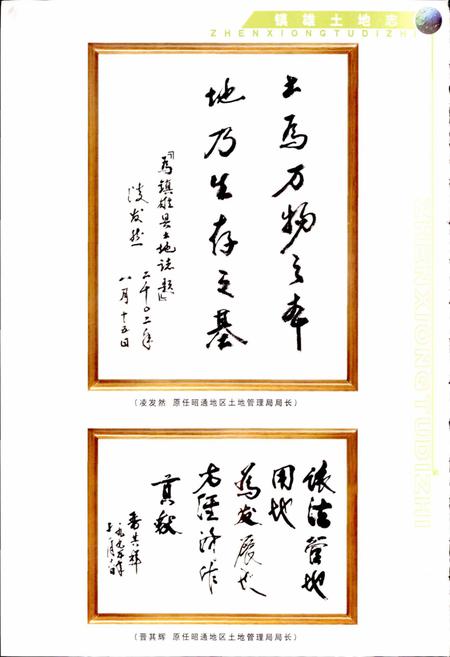 镇雄土地志
ZHENXIONGTUDIZHI
土为万物之本
地乃生存之基
为镇雄县土地志题
凌发然
二千〇二年
八月十五日
(凌发然 原任昭通地区土地管理局局长)
依法管地
用地
为发展地
方经济作
贡献
晋其辉
(晋其辉 原任昭通地区土地管理局局长)
ZHENXIONGTUDIZHI